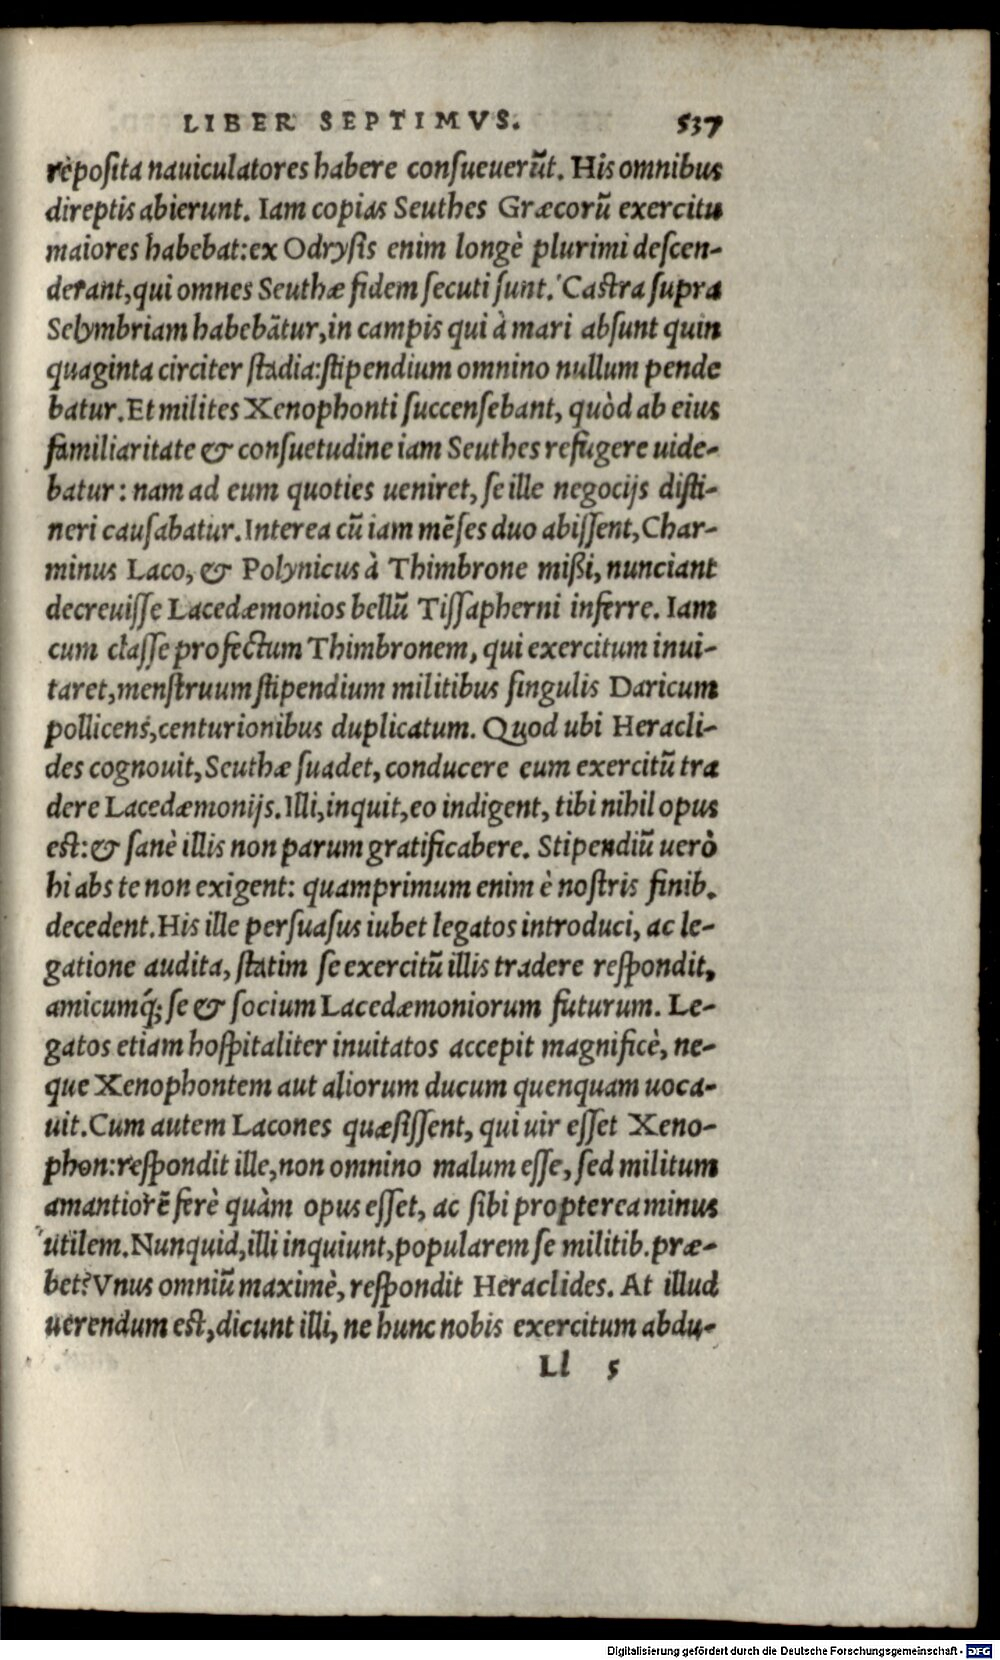 LIBER SEPTIMVS. 537
reposita nauiculatores habere consueuerũt. His omnibus
direptis abierunt. Iam copias Seuthes Græcorũ exercitu
maiores habebat: ex Odrysis enim longè plurimi descen-
derant, qui omnes Seuthæ fidem secuti sunt. Castra supra
Selymbriam habebãtur, in campis qui à mari absunt quin
quaginta circiter stadia: stipendium omnino nullum pende
batur. Et milites Xenophonti succensebant, quòd ab eius
familiaritate & consuetudine iam Seuthes refugere uide-
batur: nam ad eum quoties ueniret, se ille negocijs disti-
neri causabatur. Interea cũ iam mẽses duo abissent, Char-
minus Laco, & Polynicus à Thimbrone mißi, nunciant
decreuisse Lacedæmonios bellũ Tissapherni inferre. Iam
cum classe profectum Thimbronem, qui exercitum inui-
taret, menstruum stipendium militibus singulis Daricum
pollicens, centurionibus duplicatum. Quod ubi Heracli-
des cognouit, Seuthæ suadet, conducere eum exercitũ tra
dere Lacedæmonijs. Illi, inquit, eo indigent, tibi nihil opus
est: & sanè illis non parum gratificabere. Stipendiũ uerò
hi abs te non exigent: quamprimum enim è nostris finib.
decedent. His ille persuasus iubet legatos introduci, ac le-
gatione audita, statim se exercitũ illis tradere respondit,
amicumq́; se & socium Lacedæmoniorum futurum. Le-
gatos etiam hospitaliter inuitatos accepit magnificè, ne-
que Xenophontem aut aliorum ducum quenquam uoca-
uit. Cum autem Lacones quæsissent, qui uir esset Xeno-
phon: respondit ille, non omnino malum esse, sed militum
amantiorẽ ferè quàm opus esset, ac sibi propterea minus
utilem. Nunquid, illi inquiunt, popularem se militib. præ-
bet? Vnus omniũ maximè, respondit Heraclides. At illud
uerendum est, dicunt illi, ne hunc nobis exercitum abdu-
Ll 5
Digitalisierung gefördert durch die Deutsche Forschungsgemeinschaft - DFG